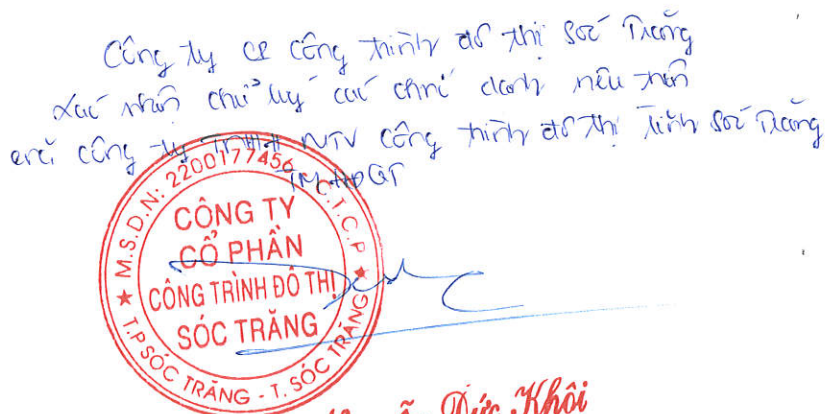 Công ty CP Công trình đô thị Sóc Trăng
xác nhận chữ ký các chức danh nêu trên
của công ty TNHH MTV công trình đô thị tỉnh Sóc Trăng
TM HĐQT
M.S.D.N: 2200177456 C.T.C.P
CÔNG TY
CỔ PHẦN
CÔNG TRÌNH ĐÔ THỊ
SÓC TRĂNG
T.P SÓC TRĂNG - T. SÓC TRĂNG
Đức Khôi